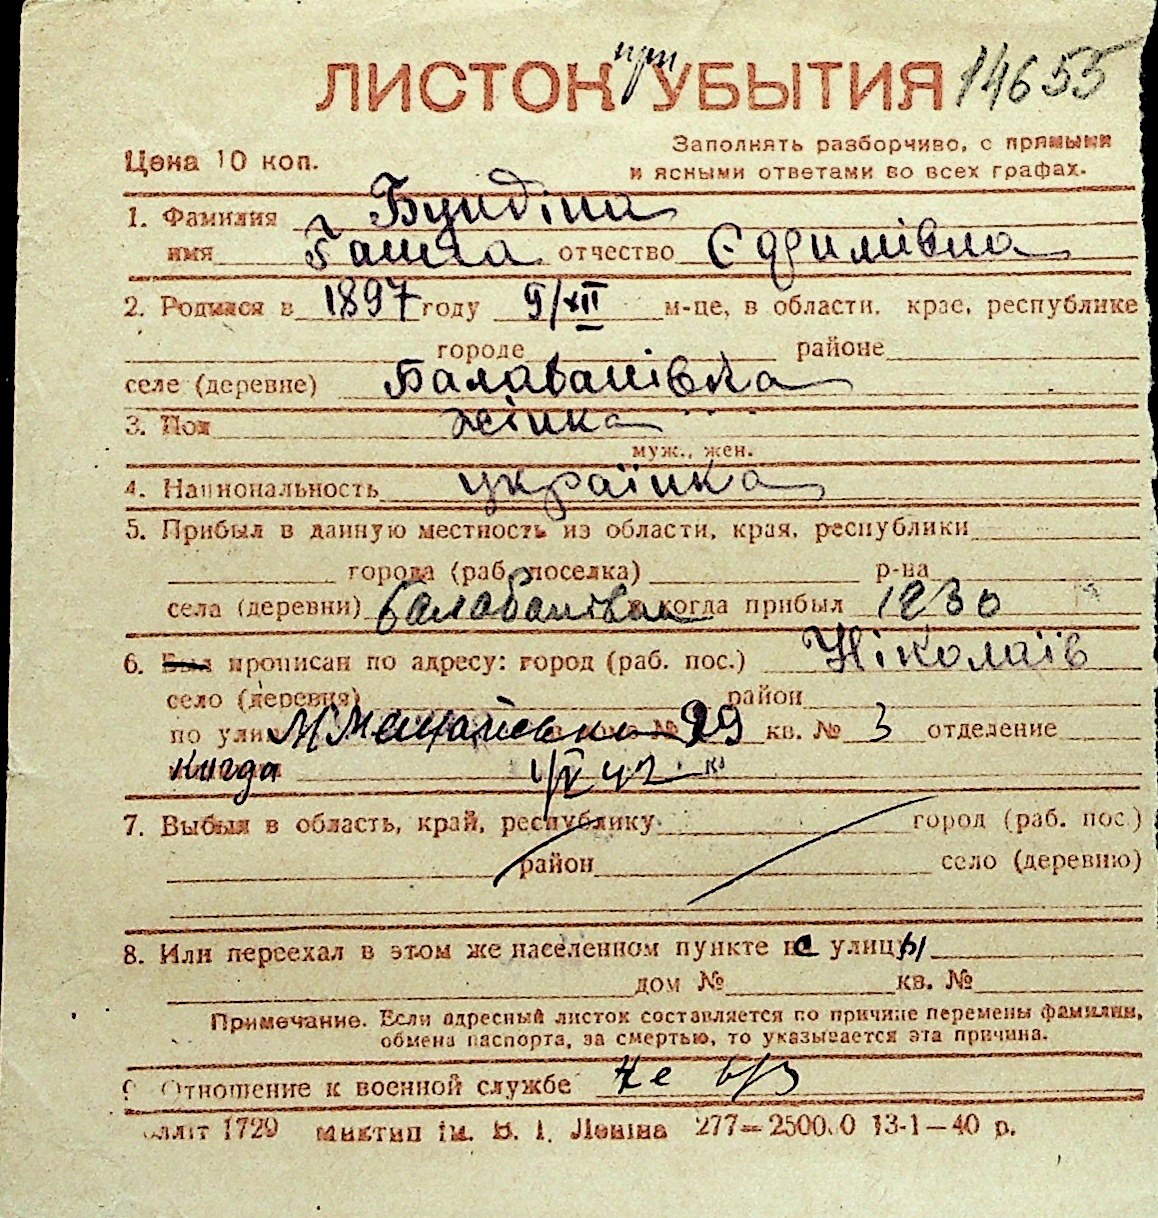 ЛИСТОК при УБЫТИЯ 14655
Цена 10 коп.
Заполнять разборчиво, с прямыми
и ясными ответами во всех графах.
1. Фамилия Бундіна
имя Ганна отчество Єфримівна
2. Родился в 1897 году 9/XII м-це, в области, крае, республике
городе районе
селе (деревне) Балабанівка
3. Пол жінка
муж., жен.
4. Национальность українка
5. Прибыл в данную местность из области, края, республики
города (раб. поселка) р-на
села (деревни) Балабанівки и когда прибыл 1230
6. Был прописан по адресу: город (раб. пос.) Ніколаїв
село (деревня) район
по улице 29 кв. № 3 отделение
Когда 1/V 42
7. Выбыл в область, край, республику город (раб. пос.)
район село (деревню)
8. Или переехал в этом же населенном пункте не улицы
дом № кв. №
Примечание. Если адресный листок составляется по причине перемены фамилии,
обмена паспорта, за смертью, то указывается эта причина.
9 Отношение к военной службе Не в/з
1729 им. В. І. Леніна 277—2500.0 13-1—40 р.